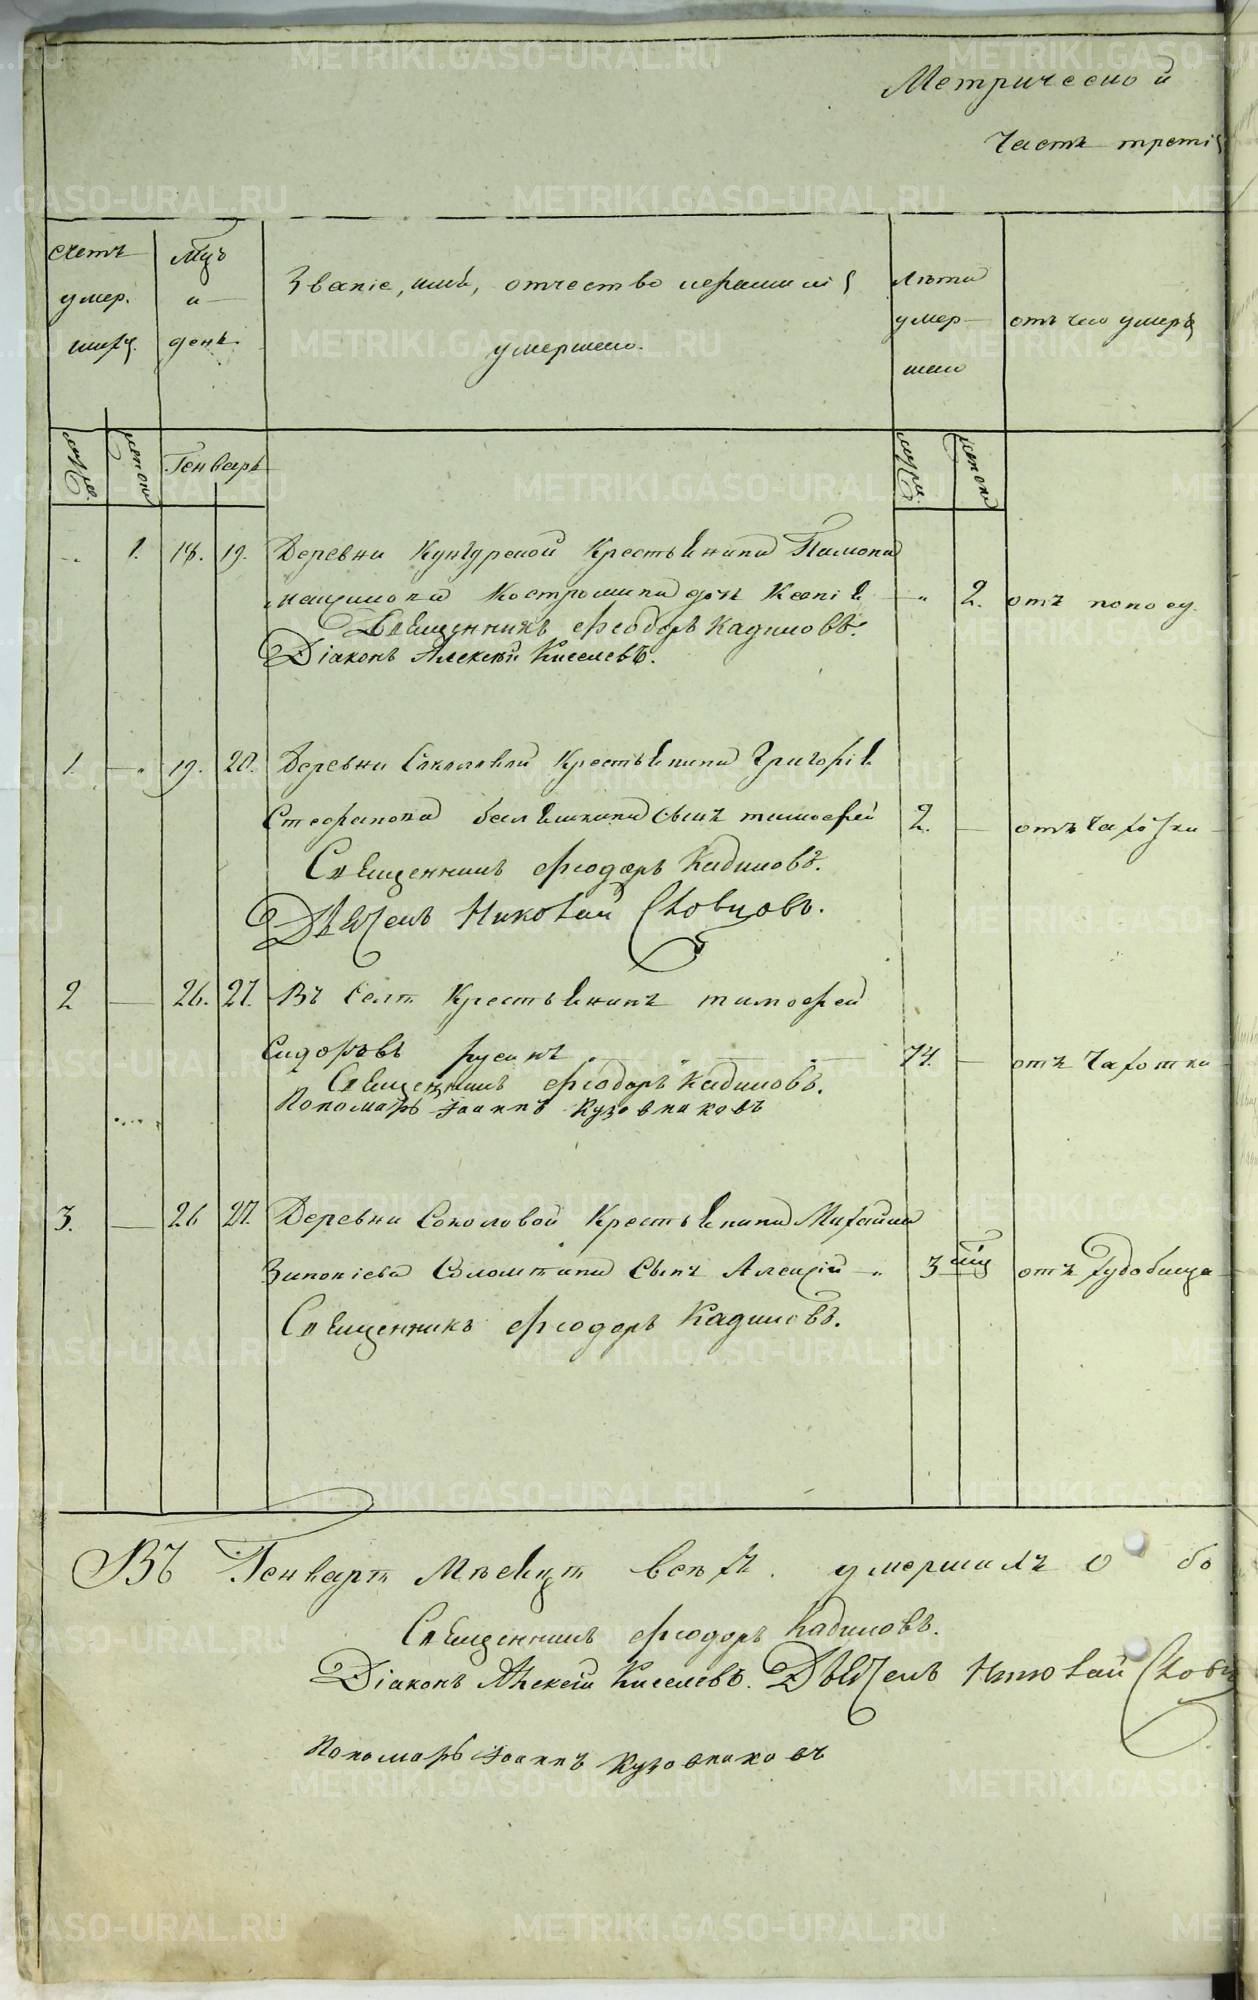 Метрической
Часть третія
счетъ умер. шихъ.
Мцъ и день.
Званіе, имя, отчество и фамилія умершаго.
Лѣта умер шаго
отъ чего умеръ
муже.
женск
Генварь
муж.
женск
1. 18. 19. Деревни Кунгурской Крестьянина
Костромина дочь Ксенія " 2. отъ поносу.
Священникъ Ѳеодоръ Кадиловъ.
Діаконъ Алексѣй Киселевъ.
1. — 19. 20. Деревни Соколовой Крестьянина Григорія
Стефанова сынъ тимофей 2. — отъ Чахотки
Священникъ Ѳеодоръ Кадиловъ.
Дьячекъ Николай Словцовъ.
2 — 26. 27. Въ Селѣ Крестьянинъ тимофей
Сидоровъ русинъ 74. — отъ Чахотки
Священникъ Ѳеодоръ Кадиловъ.
Пономарь Іоаннъ Кузовниковъ
3. — 26 27. Деревни Соколовой Крестьянина Михайла
Зиновіева Соломѣина Сынъ Алексѣй " 3 мцъ отъ Худобища
Священникъ Ѳеодоръ Кадиловъ.
Въ Генварѣ Мѣсяцѣ всѣхъ умершихъ о бо
Священникъ Ѳеодоръ Кадиловъ.
Діаконъ Алексѣй Киселевъ. Дьячекъ Николай Словц
Пономарь Іоаннъ Кузовниковъ
METRIKI.GASO-URAL.RU